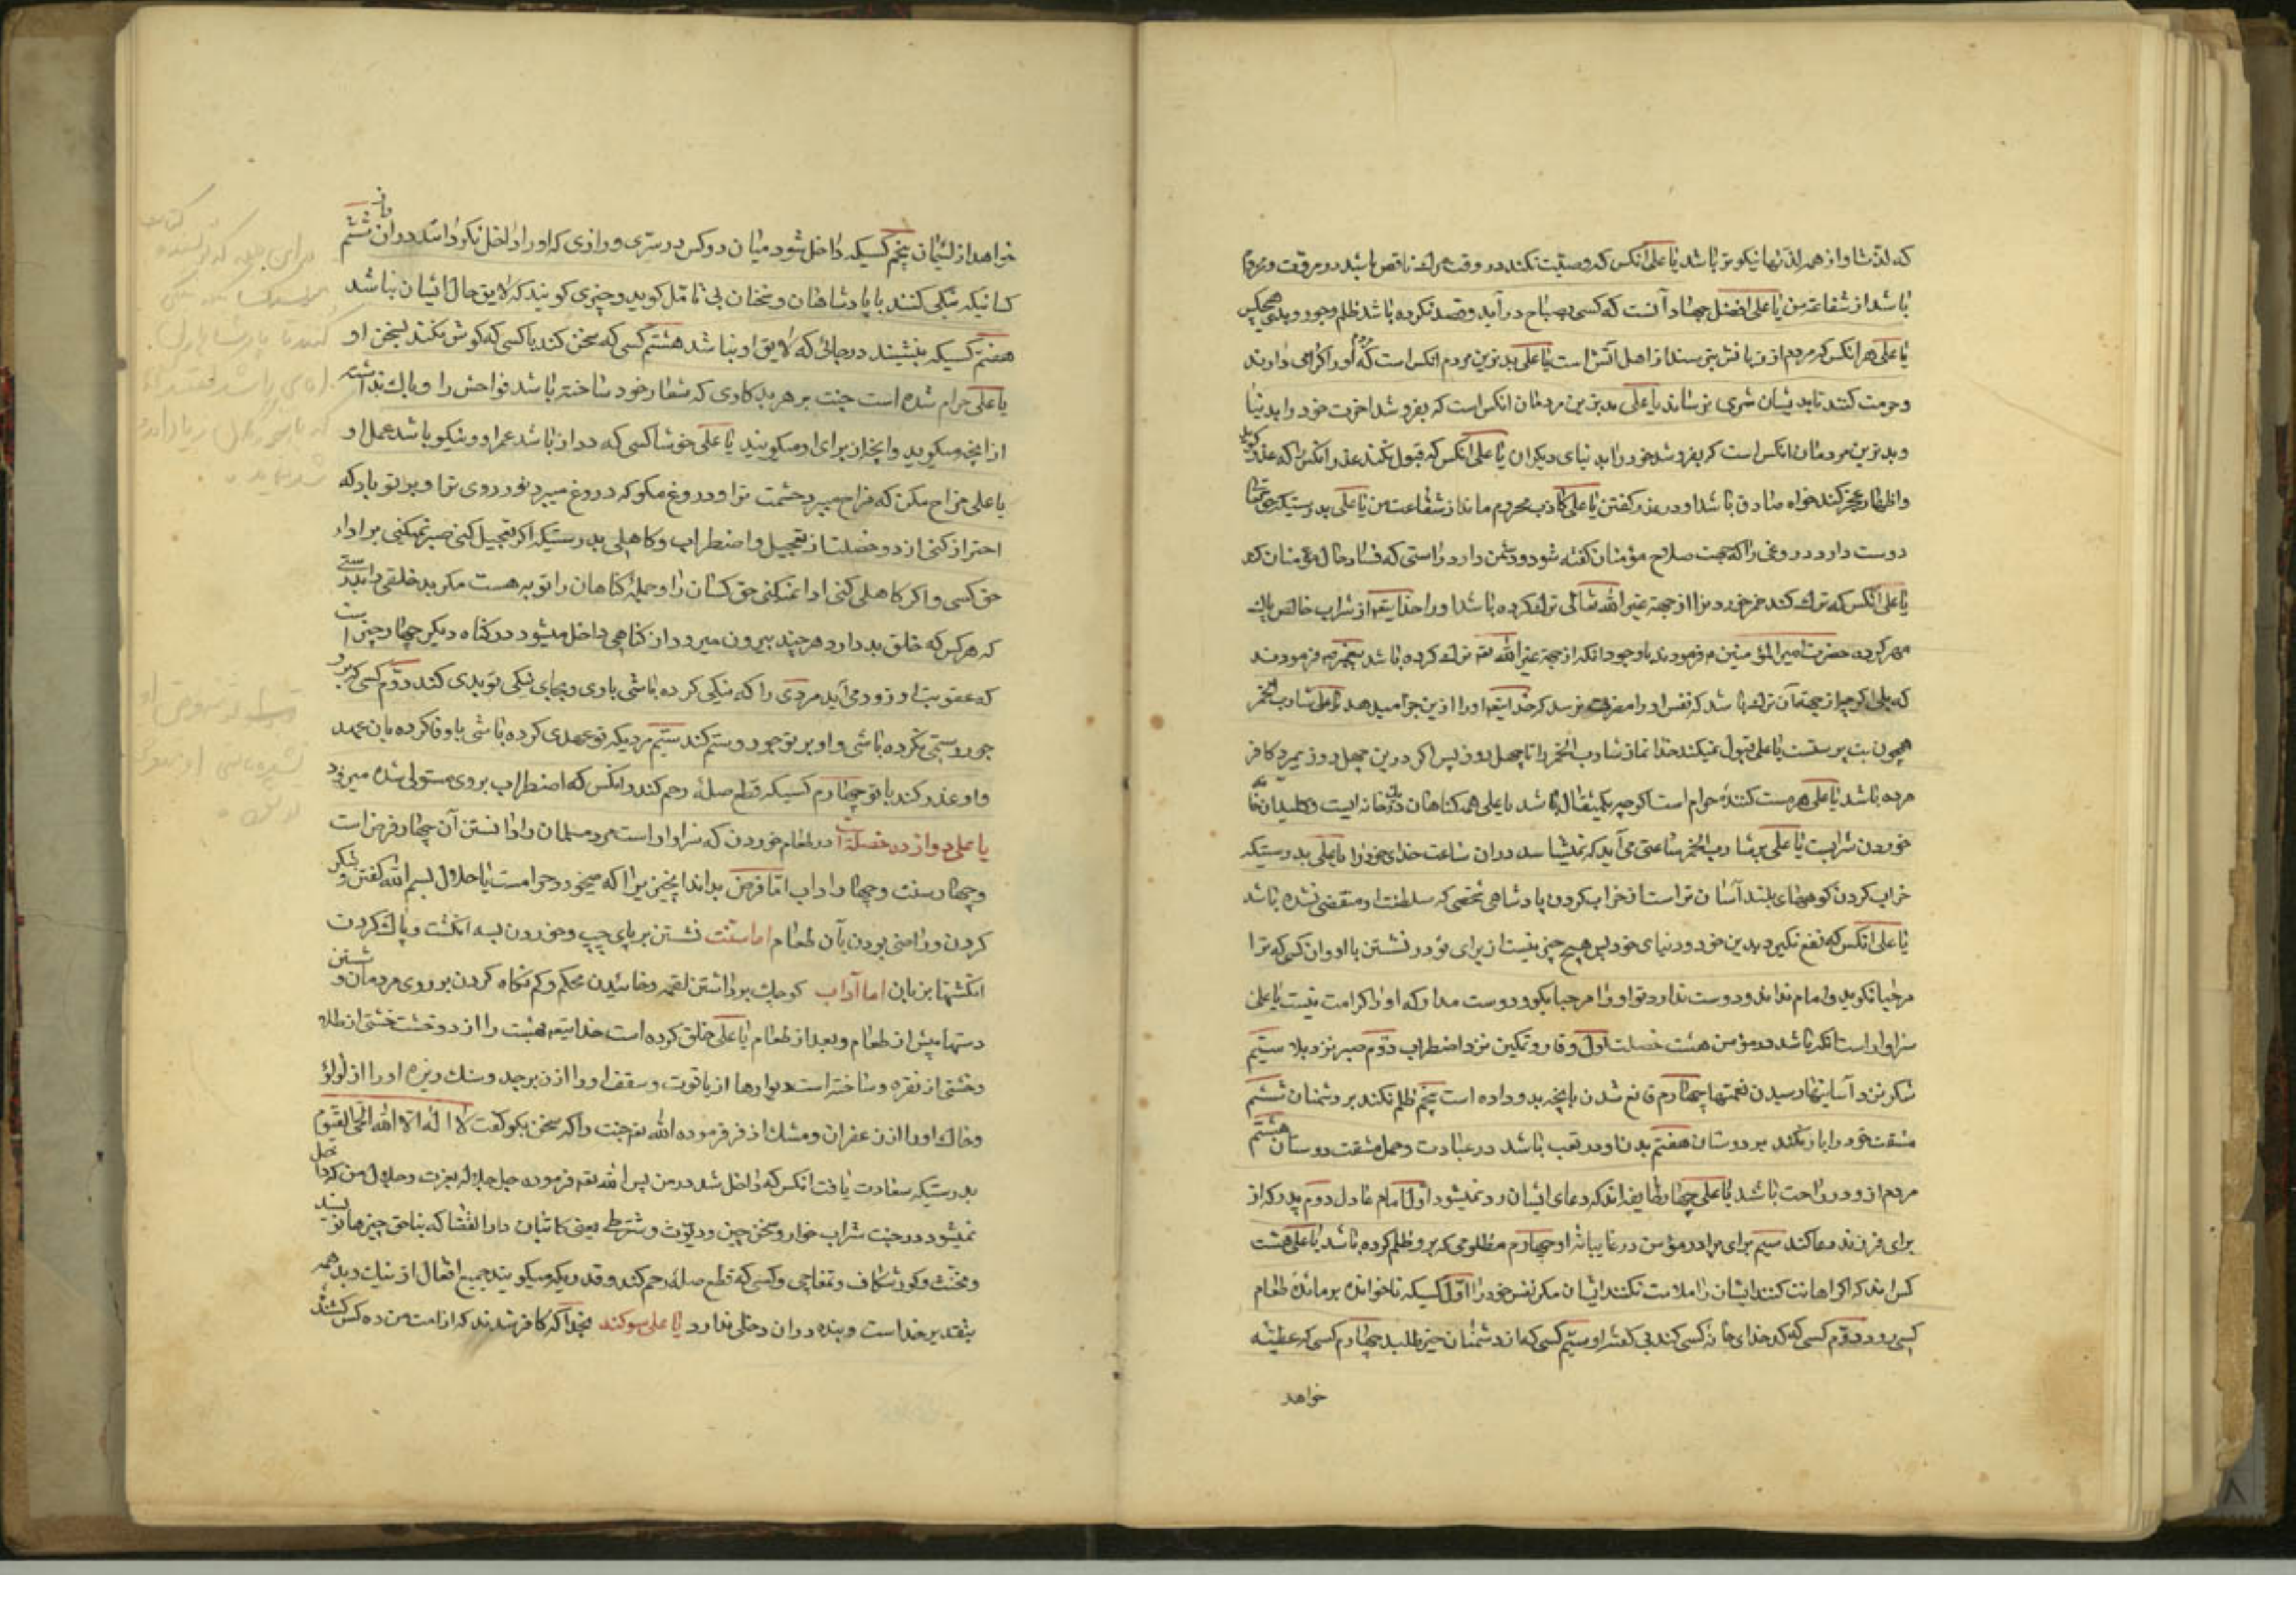 که لذتها و از همه لذتها نیکوتر باشد یا علی انکس که وصیت نکند در وقت مرک ناقص باشد در مروت و محروم
باشد از شفاعة من یا علی افضل جهاد آنست که کسی بصباح در آید و قصد نکرده باشد ظلم و جور و بدی هیچکس
یا علی هر انکس که مردم از زبانش بترسند از اهل آتش است یا علی بدترین مردم انکس است که مردم او را کرامی دارند
و حرمت کنند تا بدیشان شری نرساند یا علی بدترین مردمان انکس است که بفروشد اخرت خود را بدنیا
و بدترین مردمان انکس است که بفروشد خود را بدنیای دیکران یا علی انکس که قبول نکند عذر انکس را که عذر کوید
و اظهار عجز کند خواه صادق باشد او در عذر کفتن یا علی کاذب محروم ماند از شفاعت من یا علی بدرستیکه حق تعالی
دوست دارد دروغی را که جهت صلاح مؤمنان کفته شود و دشمن دارد راستی که فساد حال مؤمنان کند
یا علی انکس که ترک کند خمر خوردن را از جهة غیر الله تعالی ترک کرده باشد او را خدایتعه از شراب خالص پاک
مهر کرده حضرت امیر المؤمنین م فرمودند با وجود انکه از جهة غیر الله تعه ترک کرده باشد پیغمبر ص فرمودند
که بلی اکر چه از جهة آن ترک باشد که نفس او را مضرت نرسد که خدایتعه او را ازین جزا میدهد یا علی شارب الخمر
همچون بت پرستست یا علی قبول نمیکند خدا نماز شارب الخمر را تا چهل روز پس اکر درین چهل روز بمیرد کافر
مرده باشد یا علی هر مست کنندهٔ حرام است اکر چه یکمثقال باشد یا علی همه کناهان در یک خانه ایست و کلید ان خانه
خوردن شرابست یا علی بر شارب الخمر ساعتی می آید که نمیشناسد دران ساعت خدای خود را یا علی بدرستیکه
خراب کردن کوههای بلند آسان تر است از خراب کردن پادشاهی شخصی که سلطنت او منقضی نشده باشد
یا علی انکس که نفع نکیرد بدین خود و دنیای خود پس هیچ چیز نیست از برای تو در نشستن با او و ان کسی که ترا
مرحبا نکوید و امام نداند و دوست ندارد تو او را مرحبا مکو و دوست مدار که او را کرامت نیست یا علی
سزاوار است انکه باشد در مؤمن هشت خصلت اول وقار و تمکین نزد اضطراب دوم صبر نزد بلا سیم
شکر نزد آسایشها و رسیدن نعمتها چهارم قانع شدن بانچه بدو داده است پنجم ظلم نکند بر دشمنان ششم
مشقت خود را بار نکند بر دوستان هفتم بدن او در تعب باشد در عبادت و حمل مشقت دوستان هشتم
مردم از و در راحت باشند یا علی چهار طایفه اند که دعای ایشان رد نمیشود اول امام عادل دوم پدر که از
برای فرزند دعا کند سیم برای برادر مؤمن در غایبانهٔ او چهارم مظلومی که برو ظلم کرده باشند یا علی هشت
کس اند که اکر اهانت کنند ایشان را ملامت نکنند ایشان مکر نفس خود را اول کسیکه ناخوانده بر مائدهٔ طعام
کسی رود دوم کسی که کدخدای خانه کسی کند بی کفتهٔ او سیم کسی که از دشمنان خیر طلبد چهارم کسی که عطیته
خواهد
خواهد از لئیمان پنجم کسیکه داخل شود میان دو کس در سری و رازی که او را داخل نکرده اند دران راز ششم
کسانیکه سبکی کنند با پادشاهان و سخنان بی تامل کویند و چیزی کویند که لایق حال ایشان نباشد
هفتم کسیکه بنشیند در جائی که لایق او نباشد هشتم کسی که سخن کند با کسی که کوش نکند بسخن او
یا علی حرام شده است جنت بر هر بدکاری که شعار خود ساخته باشد فواحش را و باک نداشته
از انچه میکوید و انچه از برای او میکویند یا علی خوشا کسی که دراز باشد عمر او و نیکو باشد عمل او
یا علی مزاح مکن که مزاح میبرد حشمت ترا و دروغ مکو که دروغ میبرد نور روی ترا و بر تو باد که
احتراز کنی از دو خصلت از تعجیل و اضطراب و کاهلی بدرستیکه اکر تعجیل کنی صبر نمیکنی بر اداء
حق کسی و اکر کاهلی کنی ادا نمیکنی حق کسان را و جملهٔ کناهان را توبه هست مکر بد خلقی را بدرستی
که هر کس که خلق بد دارد هر چند بیرون میرود از کناهی داخل میشود در کناه دیکر چهار چیز است
که عقوبت او زود می آید مردی را که نیکی کرده باشی باوی و بجای نیکی تو بدی کند دوم کسی که برو
جور و ستمی نکرده باشی و او بر تو جور و ستم کند سیم مردیکه تو عهدی کرده باشی با او وفا کرده بان عهد
و او غدر کند با تو چهارم کسیکه قطع صلهٔ رحم کند و انکس که اضطراب بروی مستولی شده میرود
یا علی دوازده خصلت است در طعام خوردن که سزاوار است مرد مسلمان را دانستن آن چهار فرض است
و چهار سنت و چهار اداب اما فرض بداند این چیزی را که میخورد حرامست یا حلال بسم الله کفتن و شکر
کردن و راضی بودن بآن طعام اما سنت نشستن بر پای چپ و خوردن بسه انکشت و پاک کردن
انکشتها بزبان اما آداب کوچک برداشتن لقمه و خائیدن محکم و کم نکاه کردن بر روی مردمان و شستن
دستها پیش از طعام و بعد از طعام یا علی خلق کرده است خدایتعه بهشت را از دو خشت خشتی از طلا
و خشتی از نقره و ساخته است دیوارها از یاقوت و سقف او را از زبرجد و سنک ریزه او را از لؤلؤ
و خاک او را از زعفران و مشک اذفر فرموده الله تعه جنت را که سخن بکو کفت لا اله الا الله الحی القیوم
بدرستیکه سعادت یافت انکس که داخل شد در من پس الله تعه فرموده جل جلاله بعزت و جلال من که داخل
نمیشود در جنت شراب خوار و سخن چین و دیوث و شرطه یعنی کاتبان دار القضا که بناحق چیزها نویسند
و مخنث و کور شکاف و تمغاچی و کسی که قطع صلهٔ رحم کند و قدریکه میکویند جمیع افعال از نیک و بد همه
بتقدیر خداست و بنده دران دخلی ندارد یا علی سوکند بخدا که کافر شدند که از امت من ده کس کشنده